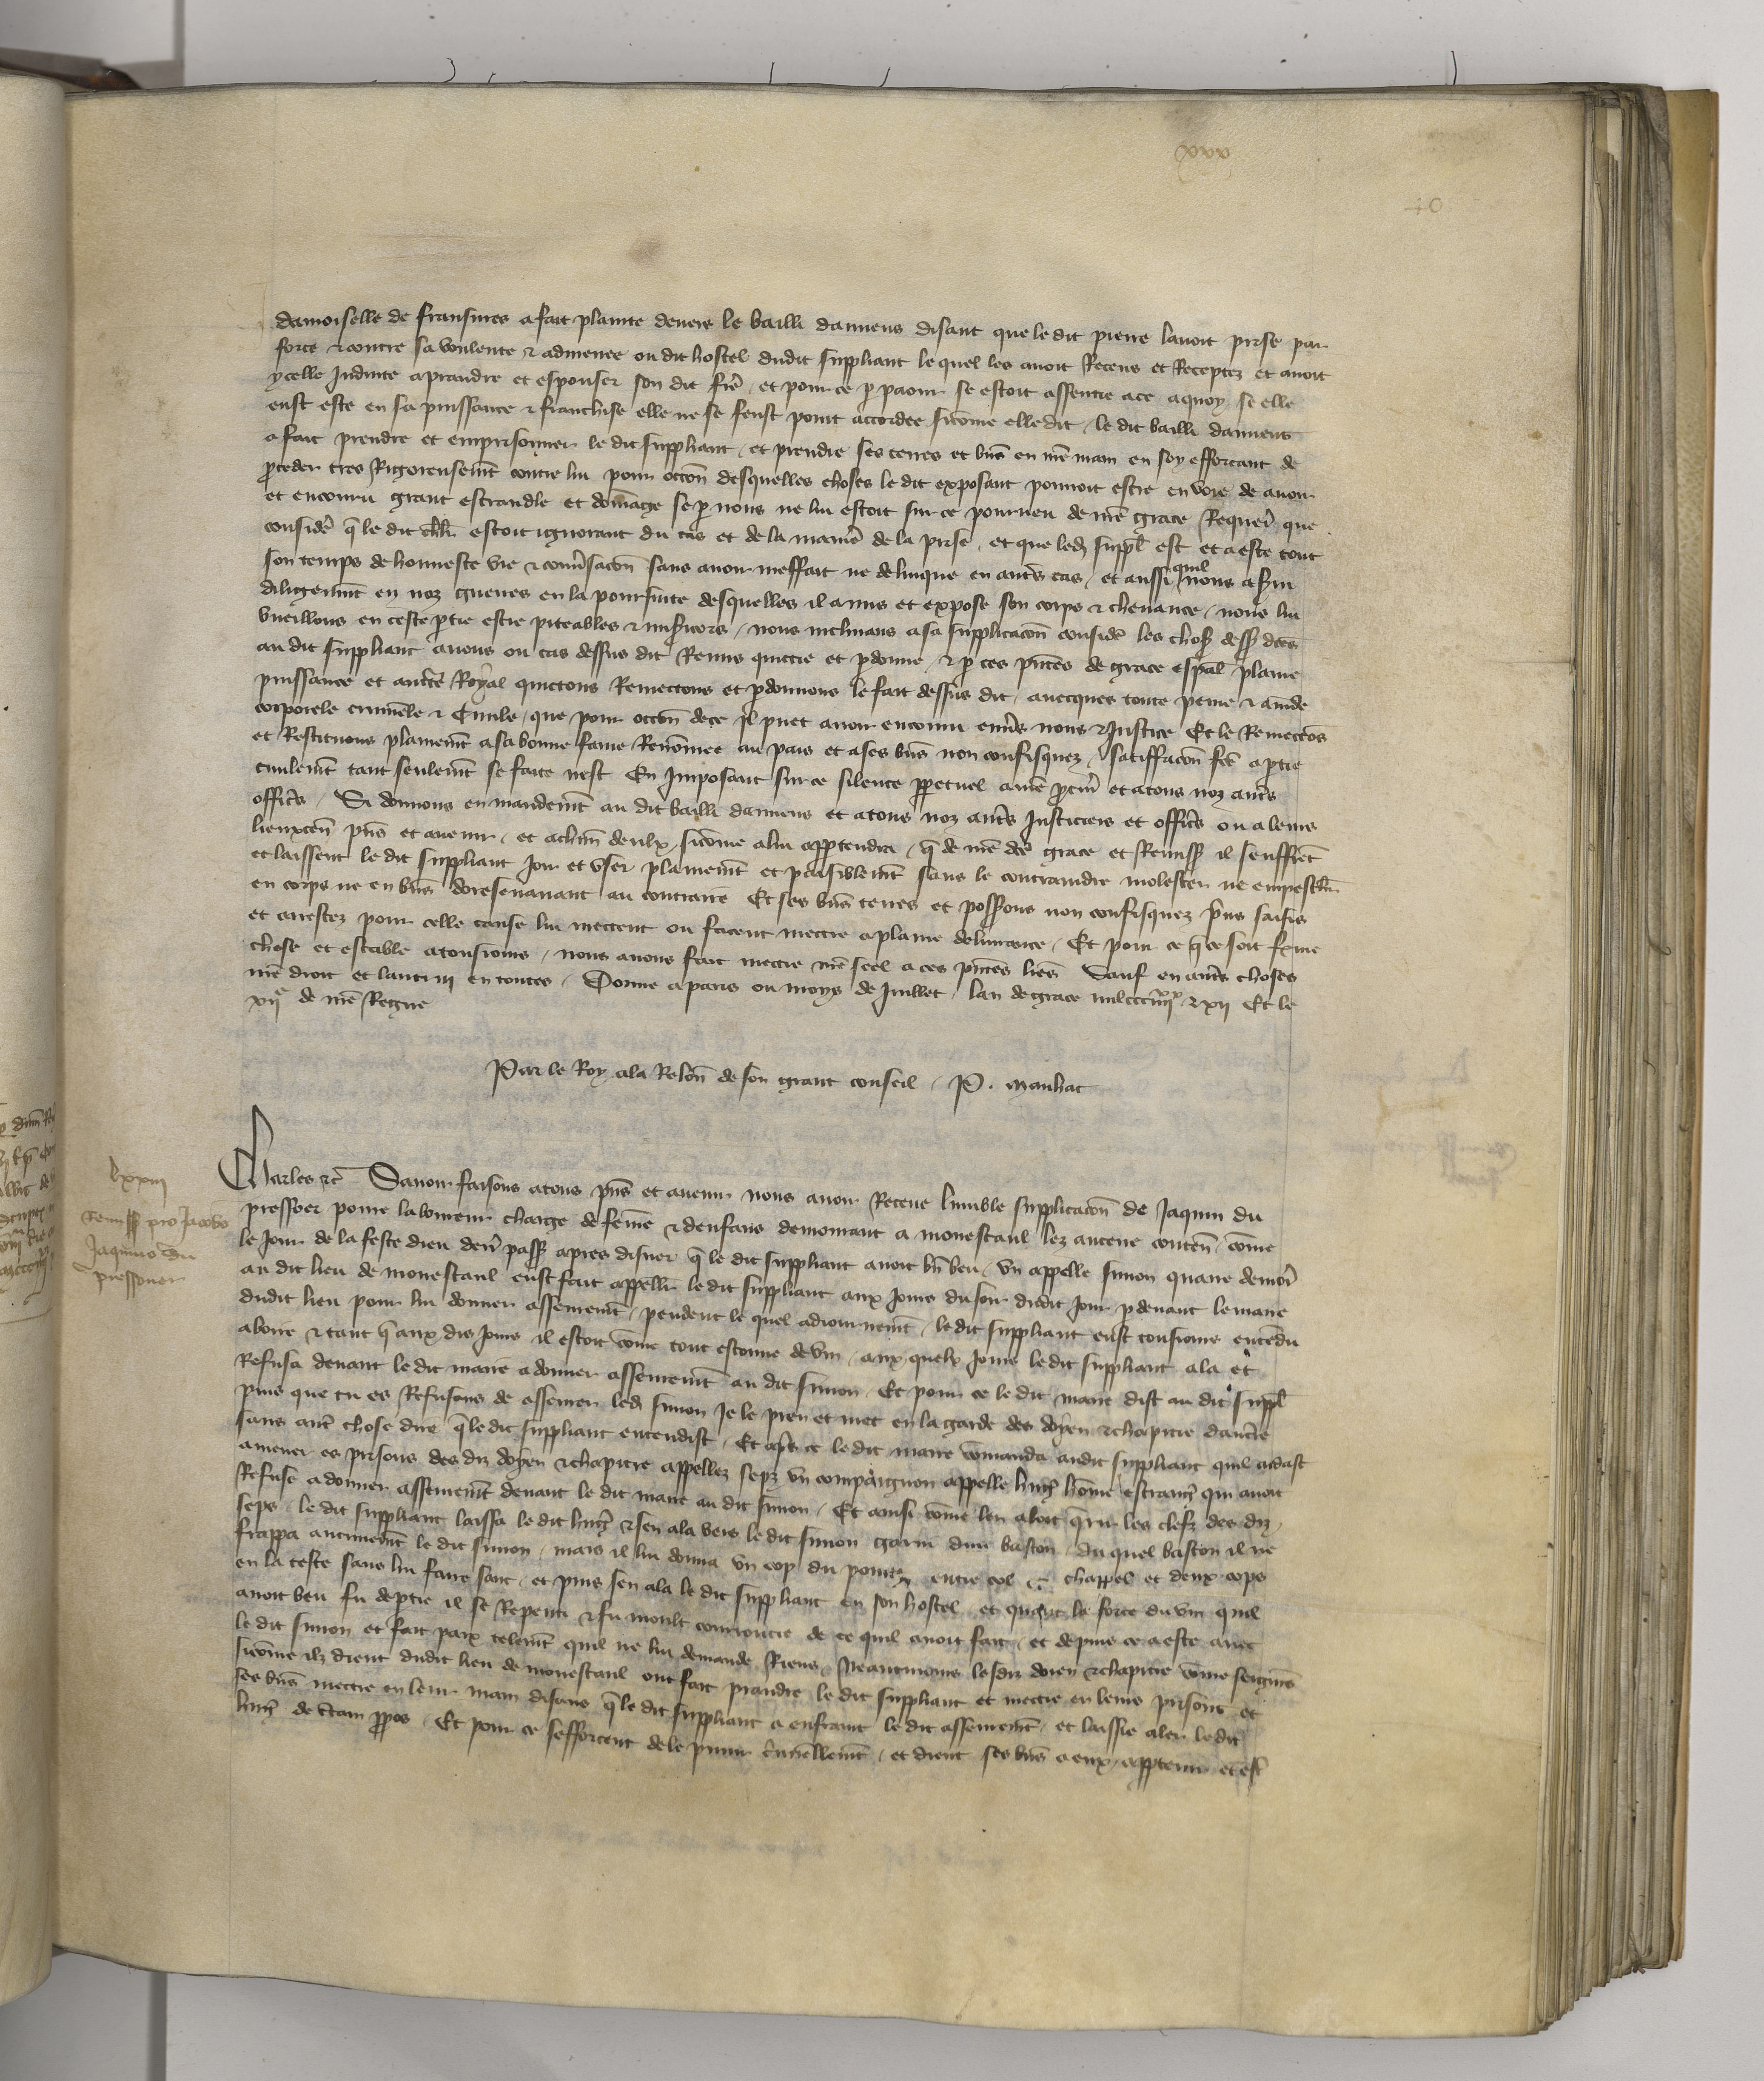 xxxv
40
damoiselle de fransures a fait plainte devers le bailli damiens disant que le dit pierre lavoit prise par
force et contre sa voulente et admenee ou dit hostel dudit suppliant le quel les avoit Receus et Receptez et avoit
ycelle Induite a prandre et espouser son dit fre et pour ce p paour se estoit assentie a ce a quoy se elle
eust este en sa puissance et franchise elle ne se feust point accordee sicome elle dit le dit bailli damiens
a fait prendre et emprisonner le dit suppliant et prendre ses terres et bns en nre main en soy efforcant de
pceder tres Rigoreusemt contre lui pour occon desquelles choses le dit exposant pourroit estre en voie de avoir
et encouru grant escandle et domage se p nous ne lui estoit sur ce pourveu de nre grace Requert que
considere q le dit chlr estoit ignorant du cas et de la maniere de la prise et que led suppl est et a este tout
son temps de honneste vie et conversacon sans avoir meffait ne delinque en autres cas et aussi quil nous a svi
diligemt en noz guerres en la poursuite desquelles il a mis et expose son corps et chevance nous lui
vueillons en ceste ptie estre piteables et misicors nous inclinans a sa supplicacon considere les choses dess dces
au dit suppliant avons ou cas dessus dit Remis quictie et pdonne et p ces pntes de grace espal plaine
puissance et auctte Royal quictons Remectons et pdonnons le fait dessus dit avecques toute peine et amde
corporele criminele et Civile que pour occon de ce Il puet avoir encouru envers nous et Justice Et le Remectos
et Restituons plainemt a sa bonne fame Renomee au pais et a ses bns non confisquez satiffacon fcte a ptie
civilemt tant seulemt se faite nest En Imposant sur ce silence ppetuel a nre pcur et a tous noz autres
offices Si donnons en mandemt au dit bailli damiens et a tous noz autres Justiciers et offices ou a leurs
lieuxten pns et avenir et a chm deulx sicome a lui apptendra q de nre dce grace et Remiss il seuffret
et laissent le dit suppliant Joir et user plainemt et paisiblemt sans le contraindre molester ne empeschr
en corps ne en bns doresenavant au contraire Et ses bns terres et possions non confisquez prins saisis
et arrestez pour celle cause lui mectent ou facent mectre a plaine delivrance Et pour ce q ce soit ferme
chose et estable a tousiours nous avons fait mectre nre seel a ces pntes lres Sauf en autres choses
nre droit et lautrui en toutes Donne a paris ou moys de Juillet lan de grace mil ccc iiiixx et xii Et le
xiie de nre Regne
Par le Roy a la Relon de son grant conseil P. manhac
lxxiii
Remiss pro Jacobo
Jaquino du
pressouer
Charles etc Savoir faisons a tous pns et avenir nous avoir Receue lumble supplicacon de Jaquin du
pressoer povre laboureur charge de feme et denfans demourant a monestaul lez aucerre contenu come
le Jour de la feste dieu denr pass apres disner q le dit suppliant avoit bn beu un appelle simon quarre demort
au dit lieu de monestaul eust fait appellr le dit suppliant aux Jours du soir dudit Jour p devant le maire
dudit lieu pour lui donner assenremt pendent le quel adiournemt le dit suppliant eust tousiours entendu
a boire et tant q aux dis Jours il estoit come tout estonne de vin aux quelx Jours le dit suppliant ala et
Refusa devant le dit maire a donner assenremt au dit simon Et pour ce le dit maire dist au dit suppl
puis que tu es Refusons de assenrer led simon Je le pren et met en la garde des doyen et chapitre daucerre
sans autre chose dire q le dit suppliant entendist Et aps ce le dit maire comanda audit suppliant quil aidast
a mener es prisons des diz doyen et chapitre appellez seps un compaignon appelle huch home estrange qui avoit
Refuse a donner assenremt devant le dit maire au dit simon Et ainsi come len aloit querir les clefz des diz
seps le dit suppliant laissa le dit huch et sen ala vers le dit simon garni dun baston du quel baston il ne
frappa aucunemt le dit simon mais il lui donna un cop du poing entre col et chappel et deux cops
en la teste sans lui faire sanc et puis sen ala le dit suppliant en son hostel et quant la force du vin quil
avoit beu fu deptie il se Repenti et fu moult courroucie de ce quil avoit fait et depuis ce a este avec
le dit simon et fait paix telemt quil ne lui demande Riens Neantmoins lesdiz doien et chapitre come seigneurs
sicome ilz dient dudit lieu de monestaul ont fait prandre le dit suppliant et mectre en leurs prisons et
ses bns mectre en leur main disans q le dit suppliant a enfraint le dit assenremt et laissie aler le dit
huch de ctain ppos Et pour ce sefforcent de le punir criminellemt et dient ses bns a eux apptenir et estre